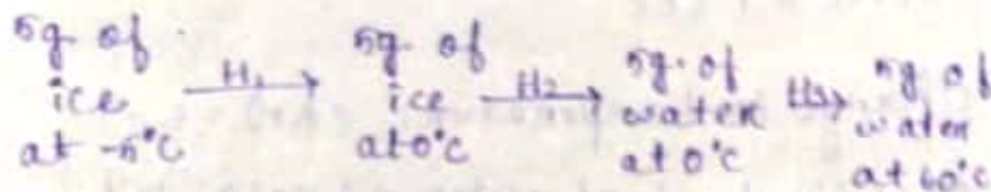 5g of
ice
at -5°C
H₁
5g of
ice
at 0°C
H₂
5g. of
water
at 0°C
H₃
5g of
water
at 60°C